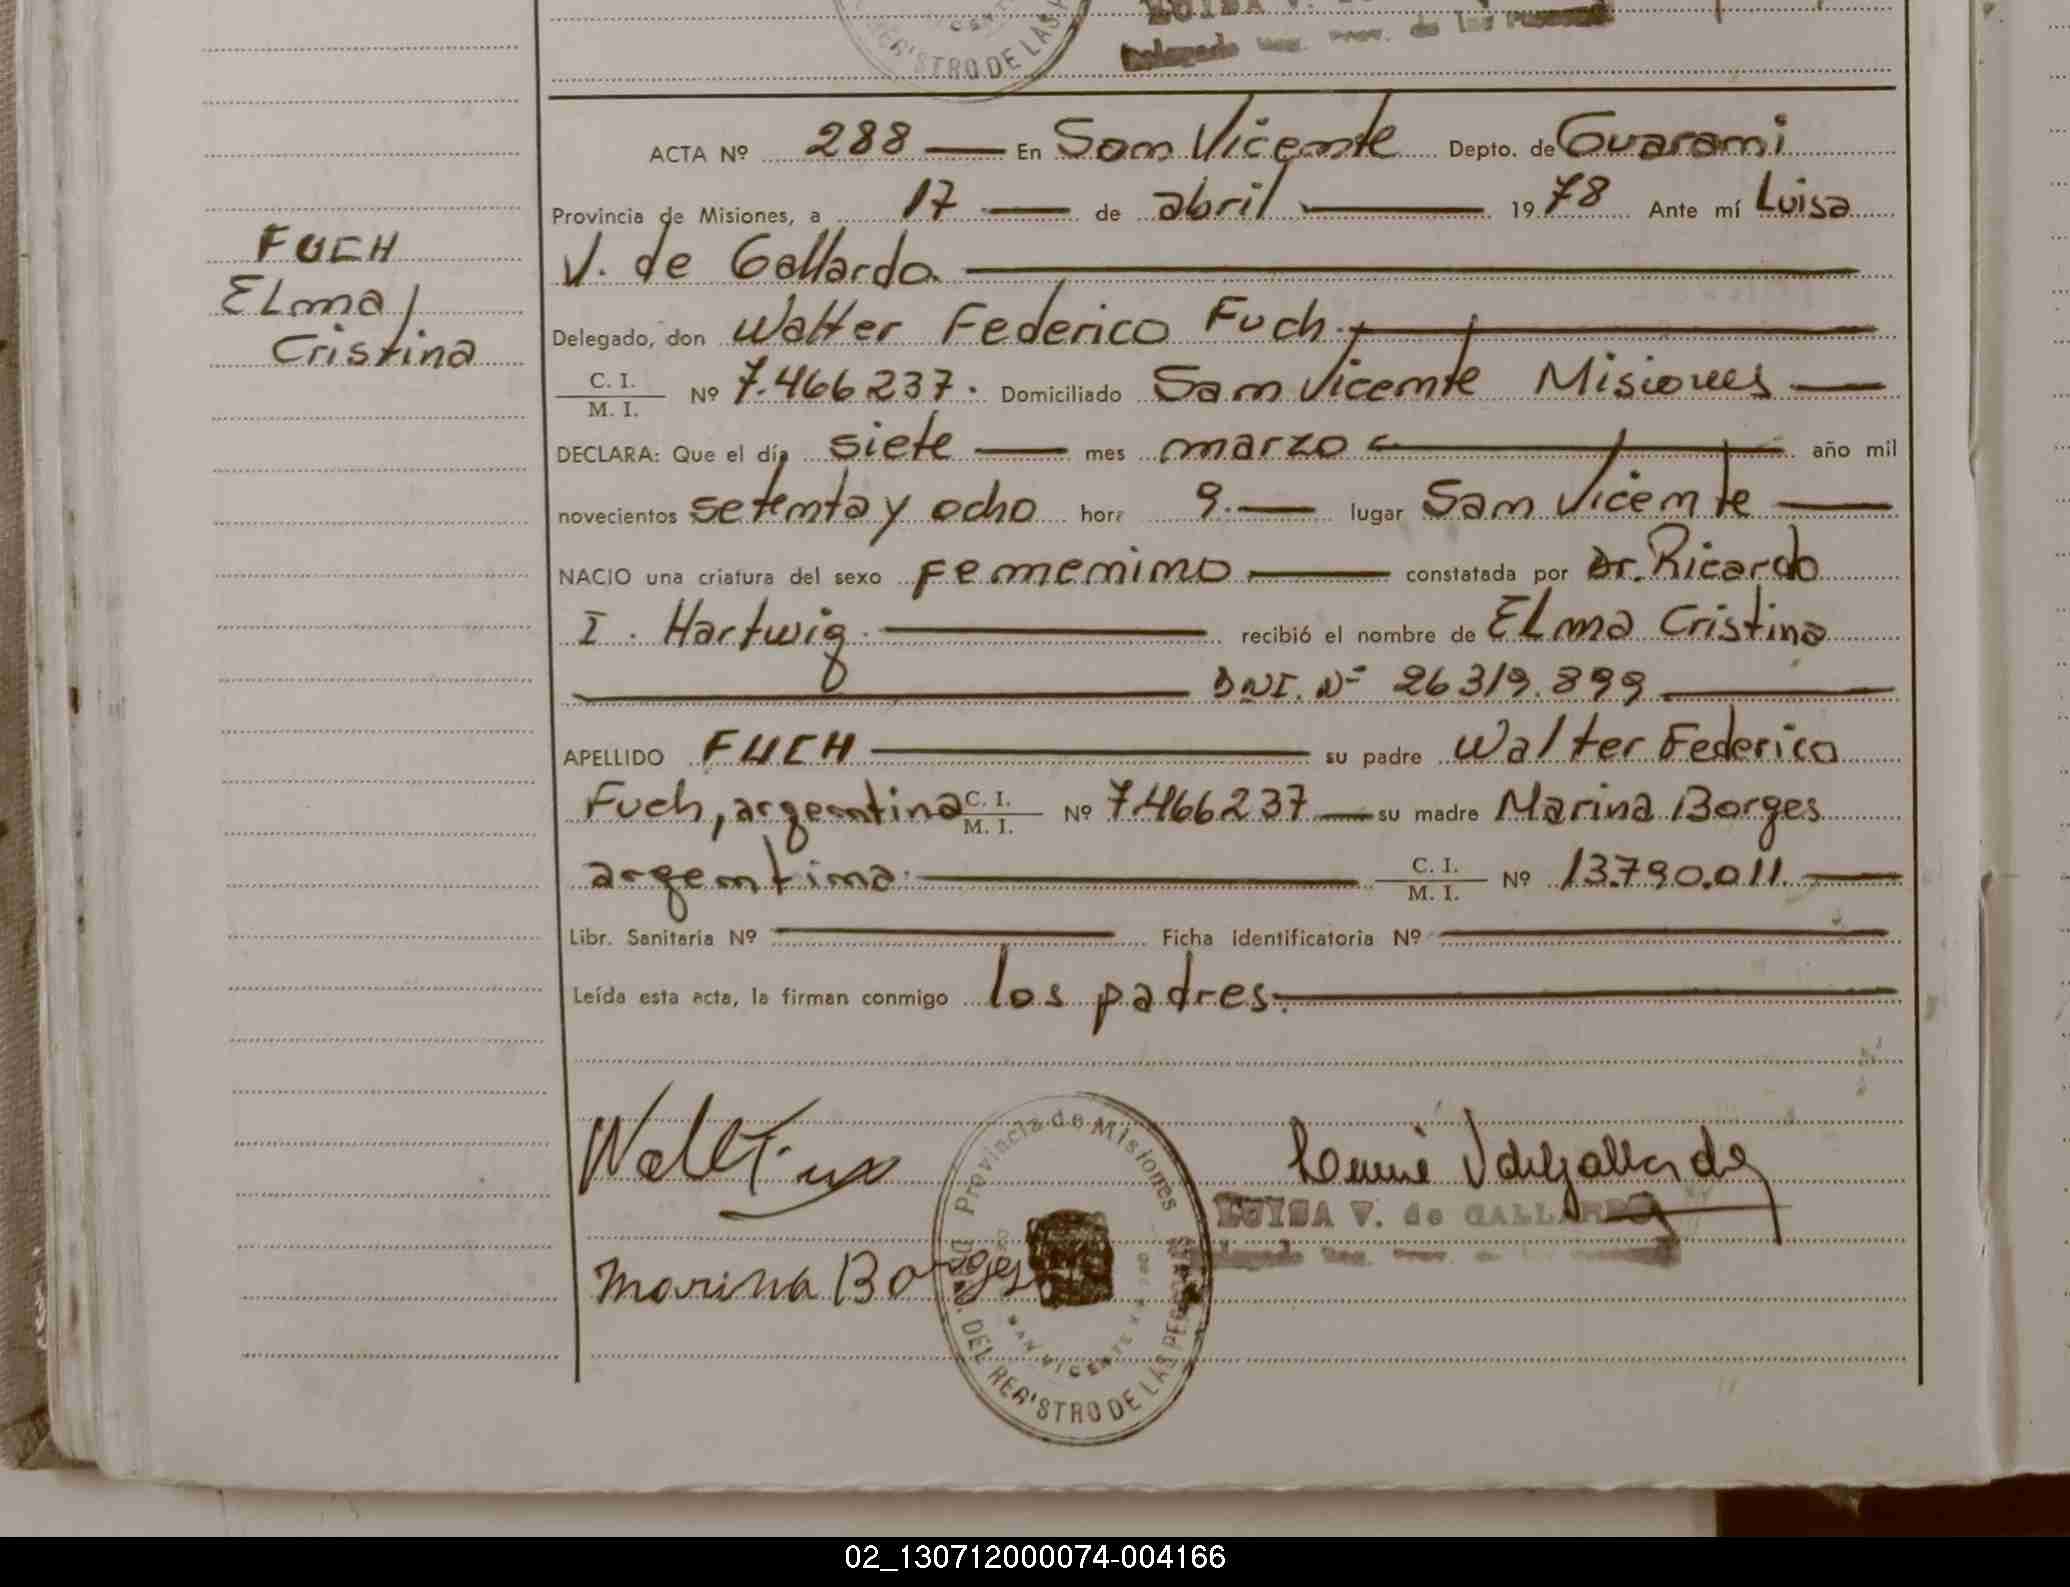 REGISTRO DE LAS
ACTA Nº 288 — En San Vicente Depto. de Guarani
Provincia de Misiones, a 17 — de abril — 1978 Ante mí Luisa
V. de Gallardo
Delegado, don Walter Federico Fuch.
C. I.
M. I. Nº 7.466237. Domiciliado San Vicente Misiones —
DECLARA: Que el día siete — mes marzo — año mil
novecientos setenta y ocho hora 9. — lugar San Vicente —
NACIO una criatura del sexo femenino — constatada por Dr. Ricardo
I. Hartwig. — recibió el nombre de Elma Cristina
— DNI. Nº 26319.899 —
APELLIDO FUCH — su padre Walter Federico
Fuch, argentino C. I.
M. I. Nº 7466237 — su madre Marina Borges
argentina — C. I.
M. I. Nº 13.790.011. —
Libr. Sanitaria Nº — Ficha identificatoria Nº —
Leída esta acta, la firman conmigo los padres. —
FUCH
Elma
Cristina
Marina Borges
Provincia de Misiones
DEL REGISTRO DE LAS PERS
SAN VICENTE
LUISA V. de GALLARDO
02_130712000074-004166